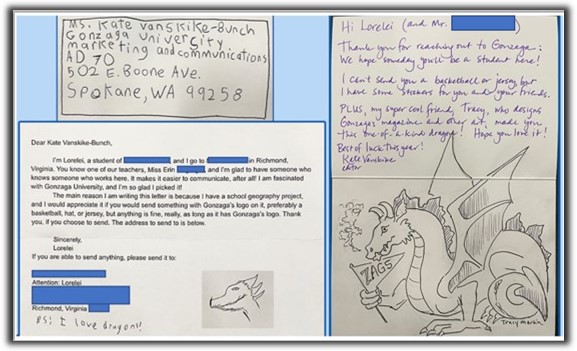 Ms. Kate Vanskike-Bunch
Gonzaga Univercity
marketing and communications
AD 70
502 E. Boone Ave.
Spokane, WA 99258
Dear Kate Vanskike-Bunch,
I'm Lorelei, a student of and I go to in Richmond,
Virginia. You know one of our teachers, Miss Erin and I'm glad to have someone who
knows someone who works here. It makes it easier to communicate, after all! I am fascinated
with Gonzaga University, and I'm so glad I picked it!
The main reason I am writing this letter is because I have a school geography project,
and I would appreciate it if you would send something with Gonzaga's logo on it, preferably a
basketball, hat, or jersey, but anything is fine, really, as long as it has Gonzaga's logo. Thank
you, if you choose to send. The address to send to is below.
Sincerely,
Lorelei
If you are able to send anything, please send it to:
Attention: Lorelei
Richmond, Virginia
PS: I love dragons!
Hi Lorelei (and Mr.
Thank you for reaching out to Gonzaga!
We hope someday you'll be a student here!
I can't send you a basketball or jersey but
I have some stickers for you and your friends.
PLUS, my super cool friend, Tracy, who designs
Gonzaga's magazine and other art, made you
this one-of-a-kind dragon! Hope you love it!
Best of luck this year!
Kate Vanskike
editor
ZAGS
Tracy Martin